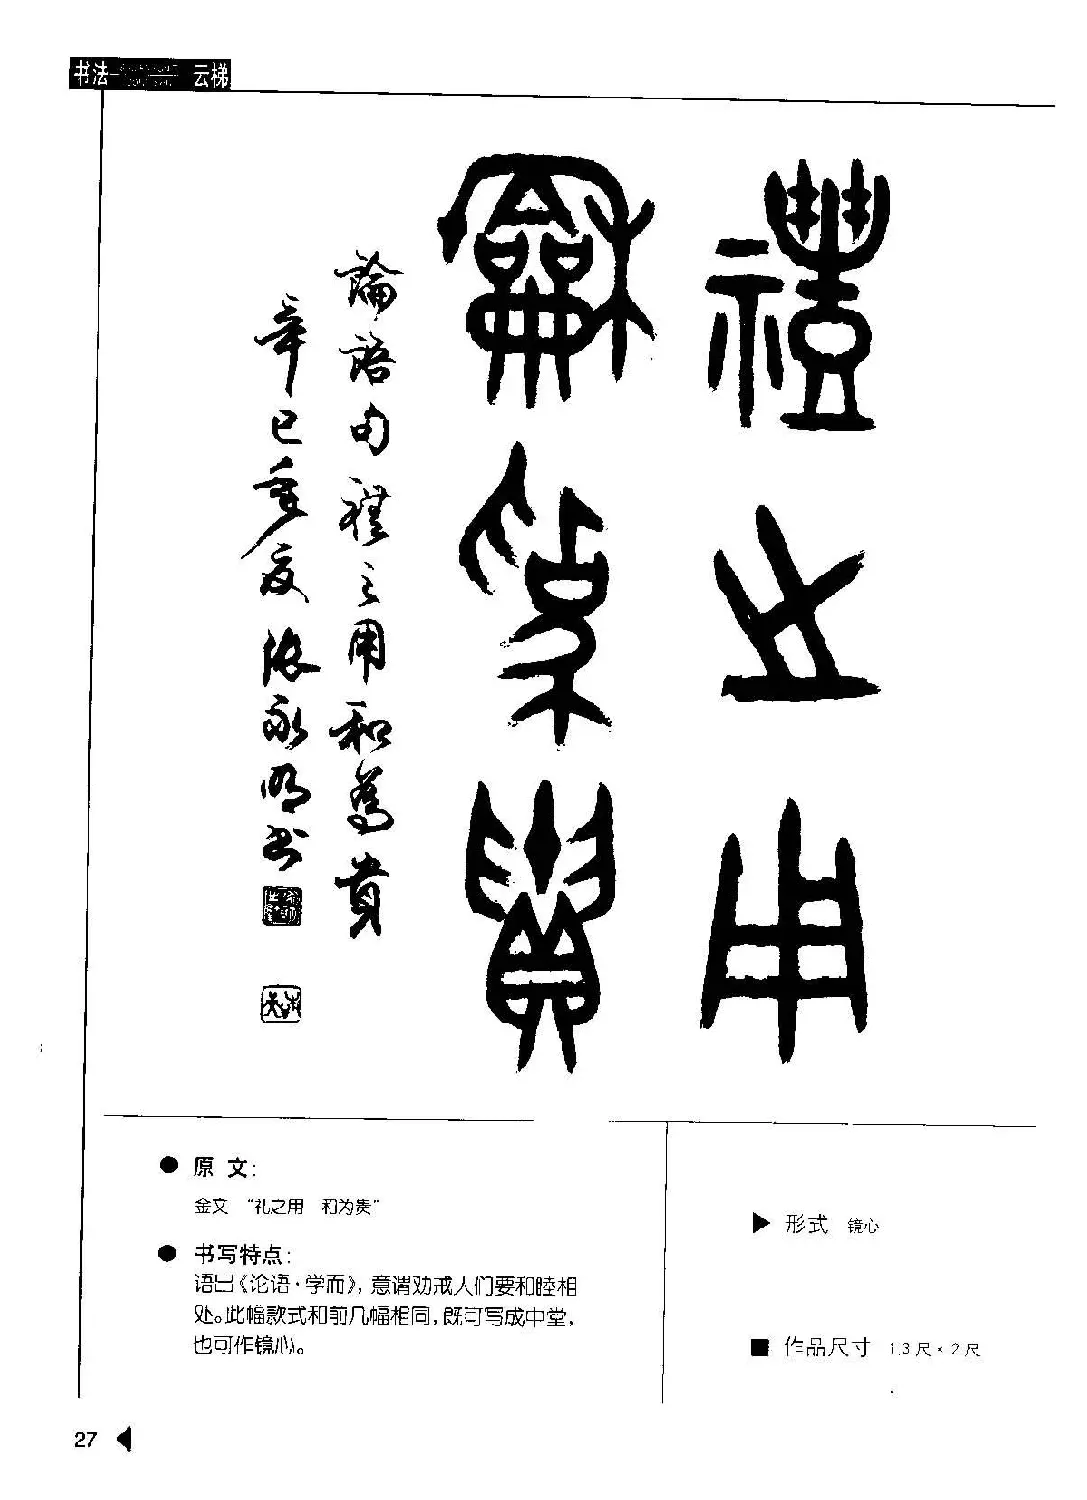 书法 云梯
禮之用
龢為貴
論語句禮之用和為貴
辛巳重夏張永明书
原文：
金文 “礼之用 和为贵”
书写特点：
语出《论语·学而》，意谓劝戒人们要和睦相
处。此幅款式和前几幅相同，既可写成中堂，
也可作镜心。
形式 镜心
作品尺寸 1.3尺×2尺
27